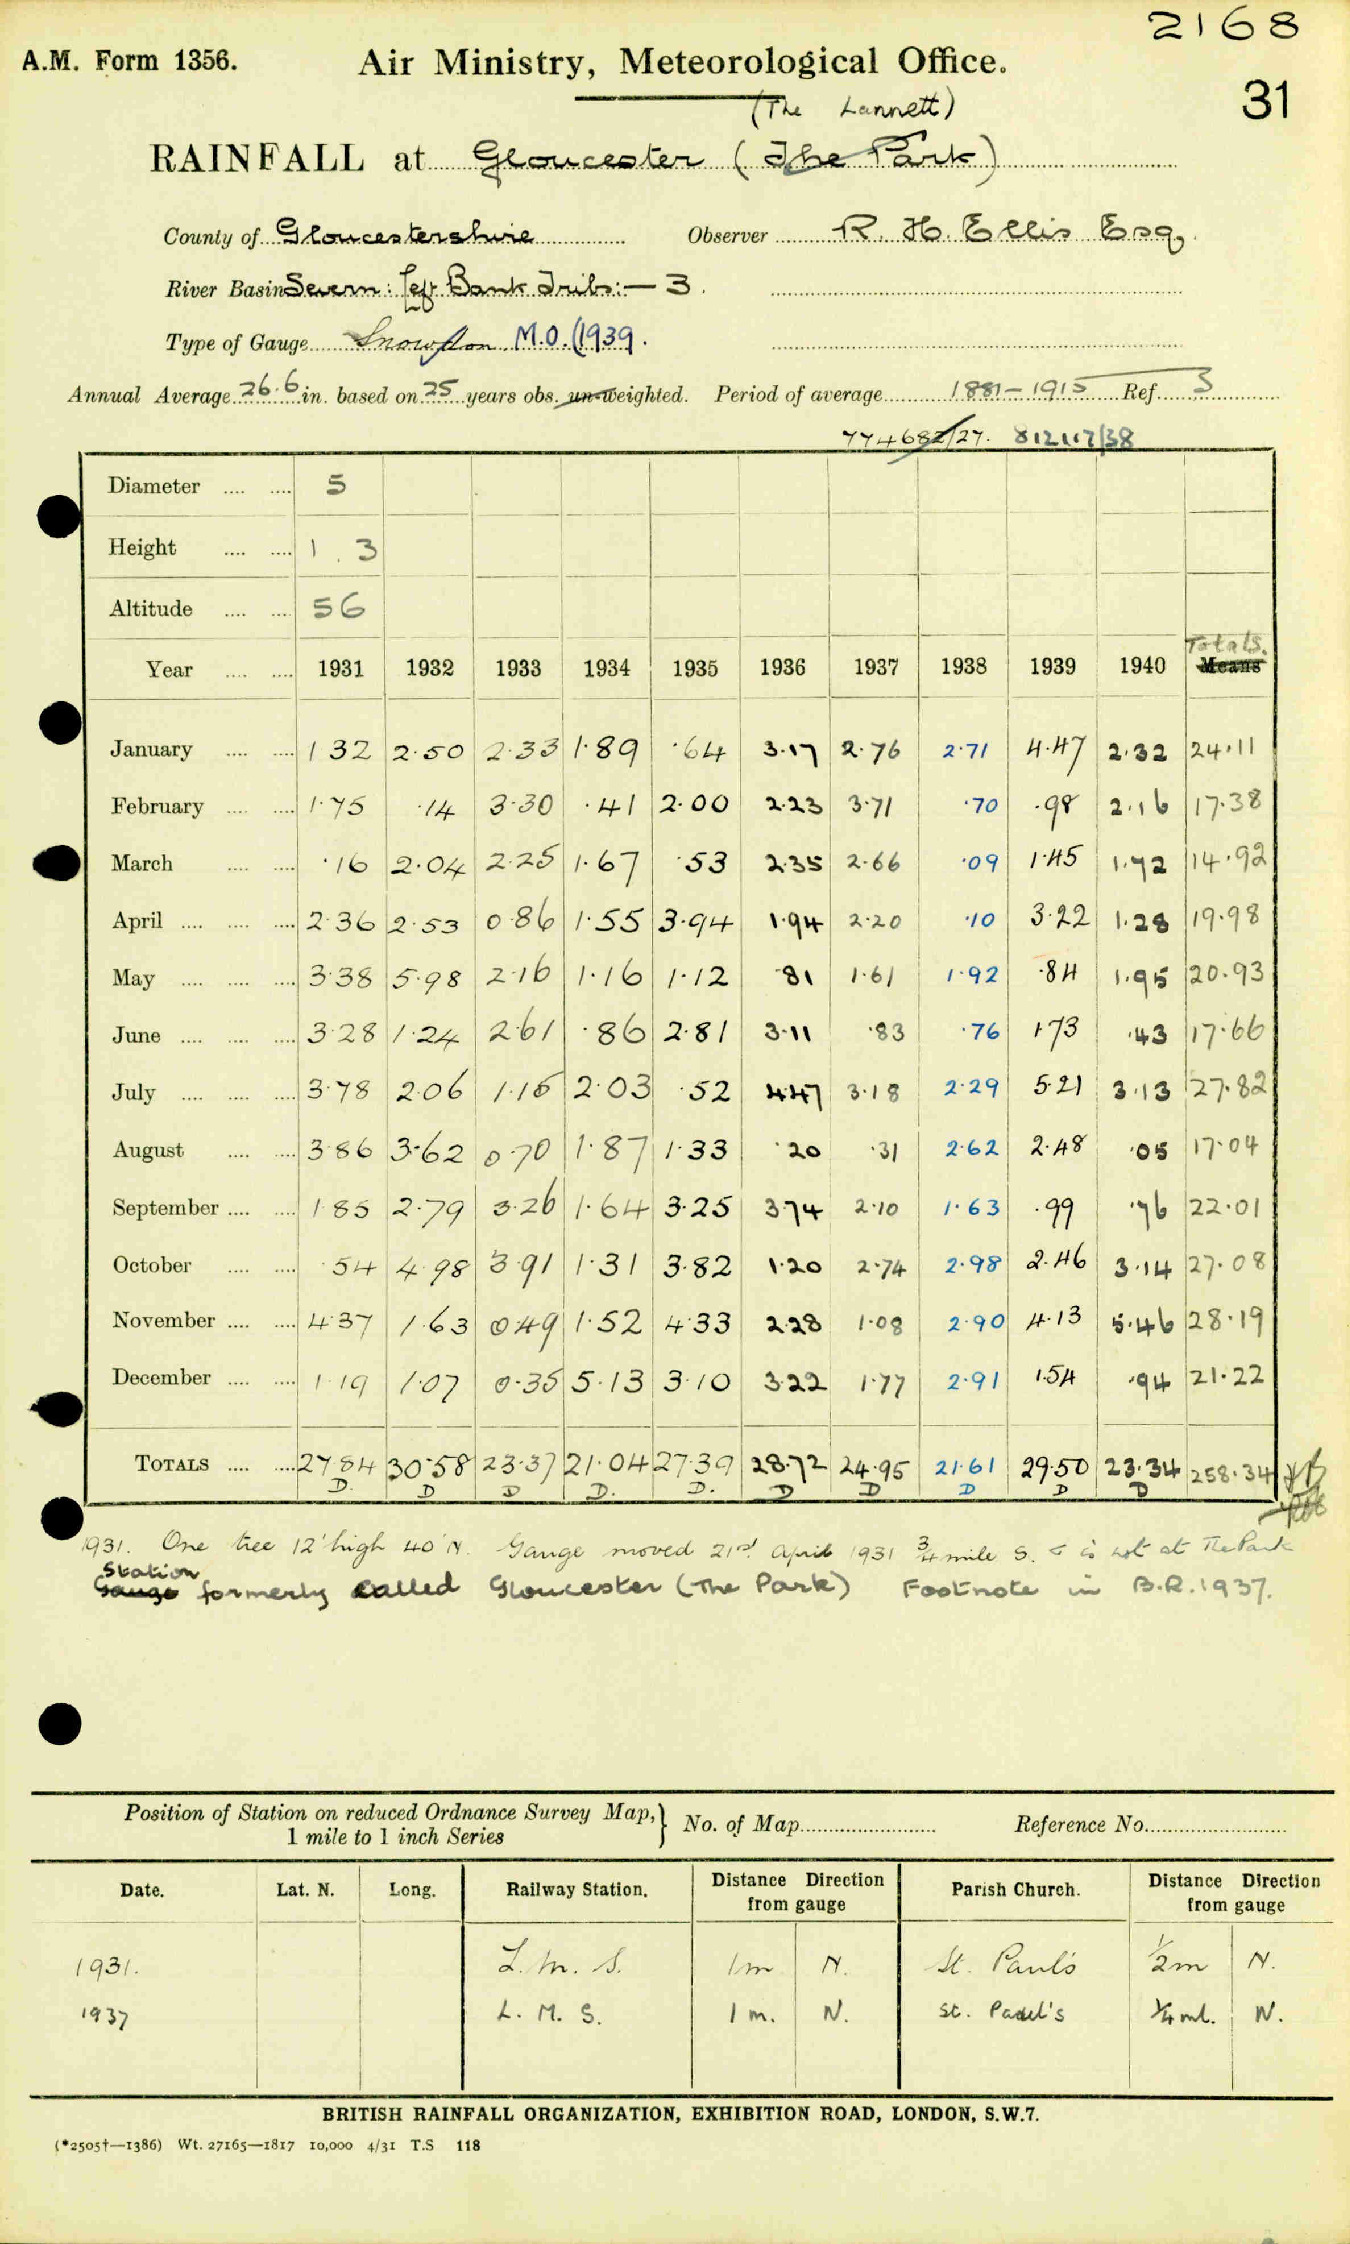 2168
A.M. Form 1356.
Air Ministry, Meteorological Office.
31
(The Lannett)
RAINFALL at Gloucester (The Park)
County of Gloucestershire Observer R. H. Ellis Esq.
River Basin Severn: Left Bank Tribs:— 3.
Type of Gauge Snowdon M.O. (1939.
Annual Average 26.6 in. based on 25 years obs. un-weighted. Period of average 1881–1915 Ref. 3
774682/27. 812117/38
Diameter .... .... 5
Height .... .... 1 . 3
Altitude .... .... 56
Totals.
Year .... .... 1931 1932 1933 1934 1935 1936 1937 1938 1939 1940 Means
January .... .... 1 32 2·50 2·33 1·89 ·64 3·17 2·76 2·71 4·47 2·32 24·11
February .... .... 1·75 ·14 3·30 ·41 2·00 2·23 3·71 ·70 ·98 2·16 17·38
March .... .... ·16 2·04 2·25 1·67 ·53 2·35 2·66 ·09 1·45 1·72 14·92
April .... .... .... 2·36 2·53 0·86 1·55 3·94 1·94 2·20 ·10 3·22 1·28 19·98
May .... .... .... 3·38 5·98 2·16 1·16 1·12 ·81 1·61 1·92 ·84 1·95 20·93
June .... .... .... 3·28 1·24 2·61 ·86 2·81 3·11 ·83 ·76 1·73 ·43 17·66
July .... .... .... 3·78 2·06 1·15 2·03 ·52 4·47 3·18 2·29 5·21 3·13 27·82
August .... .... 3·86 3·62 0·70 1·87 1·33 ·20 ·31 2·62 2·48 ·05 17·04
September .... .... 1·85 2·79 3·26 1·64 3·25 3·74 2·10 1·63 ·99 ·76 22·01
October .... .... ·54 4·98 3·91 1·31 3·82 1·20 2·74 2·98 2·46 3·14 27·08
November .... .... 4·37 1·63 0·49 1·52 4·33 2·28 1·08 2·90 4·13 5·46 28·19
December .... .... 1·19 1·07 0·35 5·13 3·10 3·22 1·77 2·91 1·54 ·94 21·22
TOTALS .... .... 27·84 30·58 23·37 21·04 27·39 28·72 24·95 21·61 29·50 23·34 258·34
D. D D D. D. D D D D D
1931. One tree 12' high 40' N. Gauge moved 21st April 1931 3/4 mile S. & is not at The Park
Station
Gauge formerly called Gloucester (The Park) Footnote in B.R. 1937.
Position of Station on reduced Ordnance Survey Map,} No. of Map Reference No.
1 mile to 1 inch Series
Date. Lat. N. Long. Railway Station. Distance Direction from gauge Parish Church. Distance Direction from gauge
1931. L. M. S. 1 m N. St. Paul's 1/2 m N.
1937 L. M. S. 1 m. N. St. Paul's 1/4 ml. N.
BRITISH RAINFALL ORGANIZATION, EXHIBITION ROAD, LONDON, S.W.7.
(*2505†—1386) Wt. 27165—1817 10,000 4/31 T.S 118